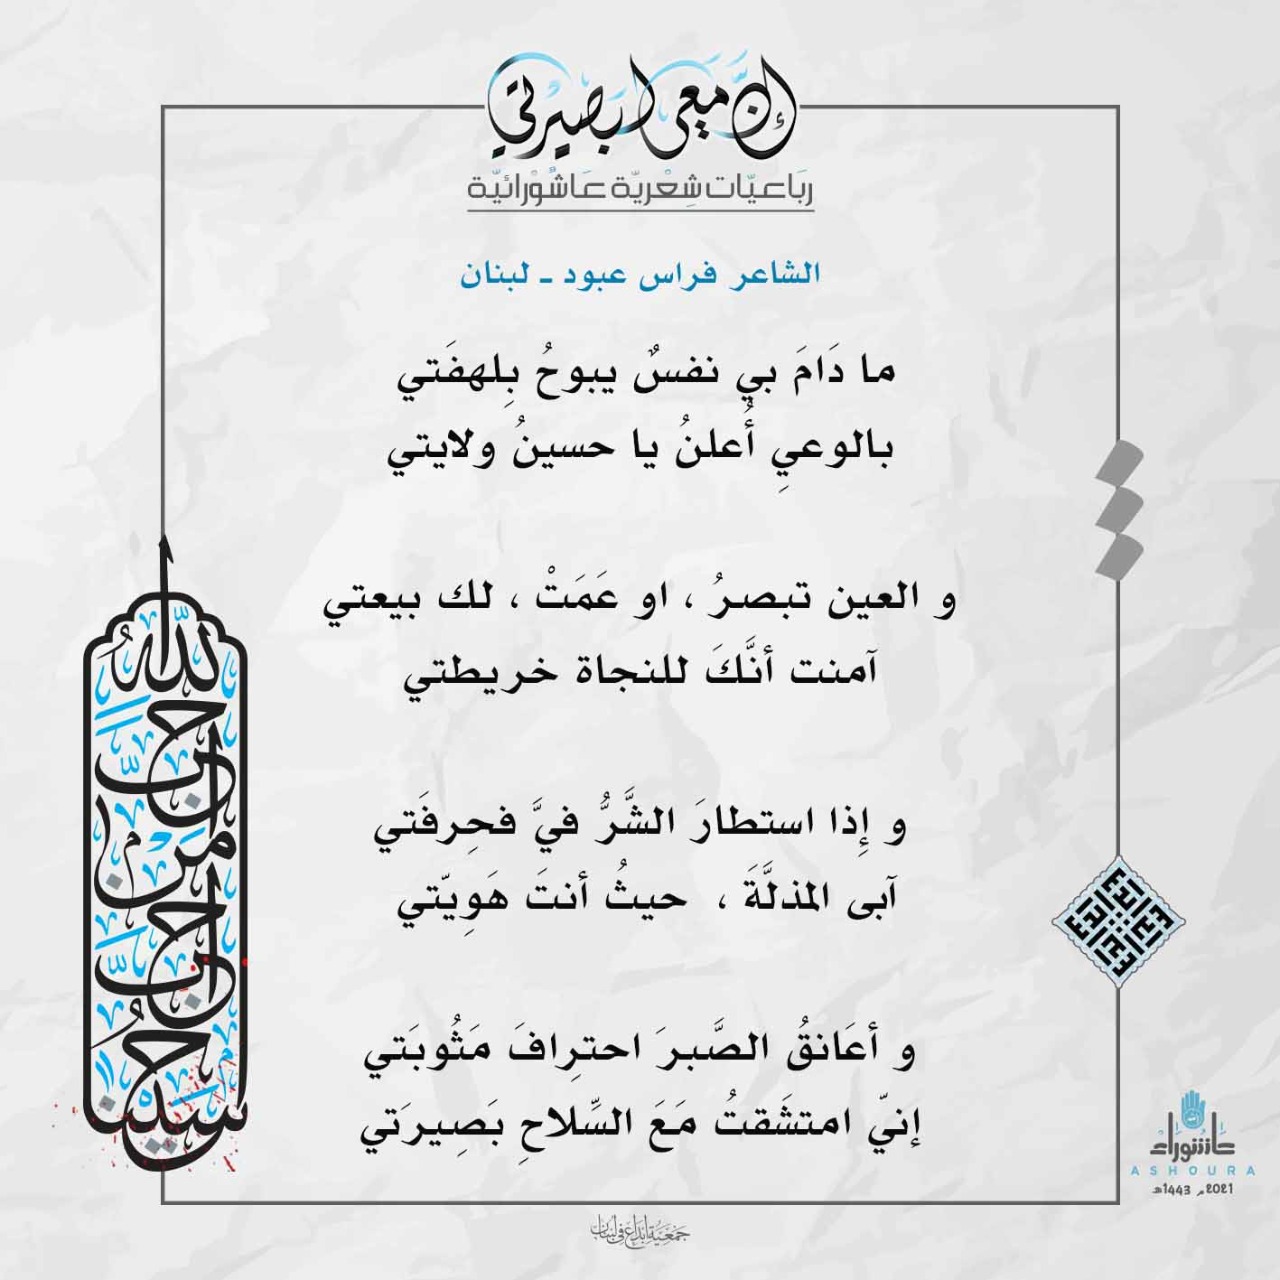 إنَّ معي لبصيرتي
رباعيّات شِعْريّة عاشُوْرائيّة
الشاعر فراس عبود ـ لبنان
ما دَامَ بي نفسٌ يبوحُ بِلهفَتي
بالوعيِ أُعلنُ يا حسينُ ولايتي
و العين تبصرُ ، او عَمَتْ ، لك بيعتي
آمنت أنَّكَ للنجاة خريطتي
و إِذا استطارَ الشَّرُّ فيَّ فحِرفَتي
آبى المذلَّةَ ، حيثُ أنتَ هَوِيّتي
و أعَانقُ الصَّبرَ احترِافَ مَثُوبَتي
إنيّ امتشَقتُ مَعَ السِّلاحِ بَصِيرَتي
أحب الله من أحب حسينا
عاشوراء
ASHOURA
2021م 1443هـ
جمعية إبداع في لبنان